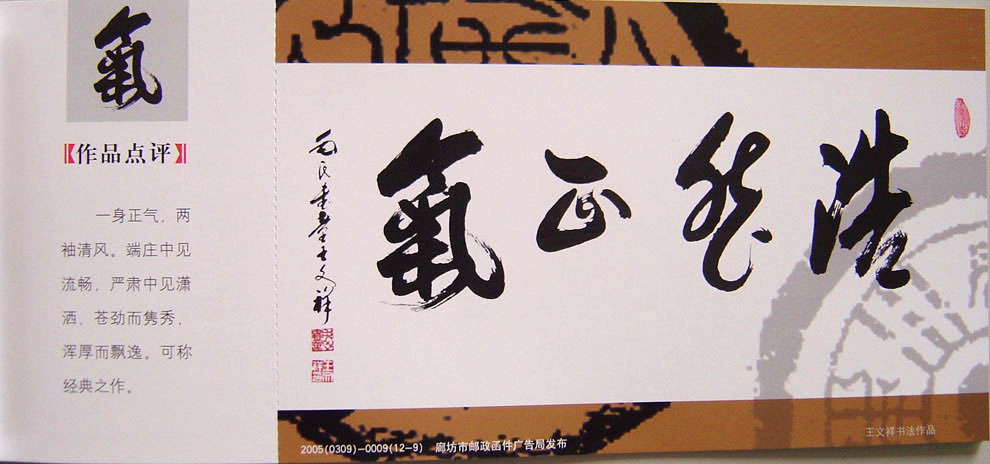 氣
【作品点评】
一身正气，两
袖清风。端庄中见
流畅，严肃中见潇
洒，苍劲而隽秀，
浑厚而飘逸。可称
经典之作。
浩然正氣
王文祥
2005(0309)—0009(12-9) 廊坊市邮政函件广告局发布
王文祥书法作品